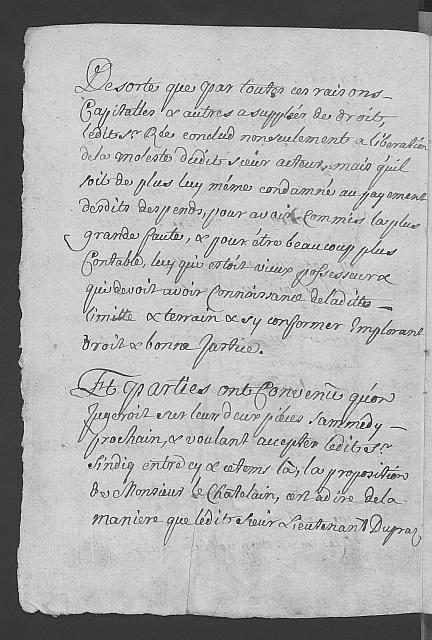 De sorte que par toutes ces raisons
Capitalles & autres a suppléer de droit,
ledit Sr. Rée conclud non seulement a liberation
de la moleste dudit sieur acteur, mais qu'il
soit de plus luy même condamné au payement
desdits despends, pour avoir commis la plus
grande faute, & pour être beaucoup plus
Contable, luy qui estoit vieux possesseur &
qui devoit avoir Connoissance de ladite
limitte & terrain & sy conformer Implorant
droit & bonne Justice.
Et parties ont Convenu qu'on
Jugeroit sur leur deux pieces sammedy
prochain, & voulant accepter ledit Sr.
Sindiq entre cy & ce tems là, la proposition
de Monsieur le Chatelain, cest adire de la
maniere que ledit Sieur Lieutenant Dupraz